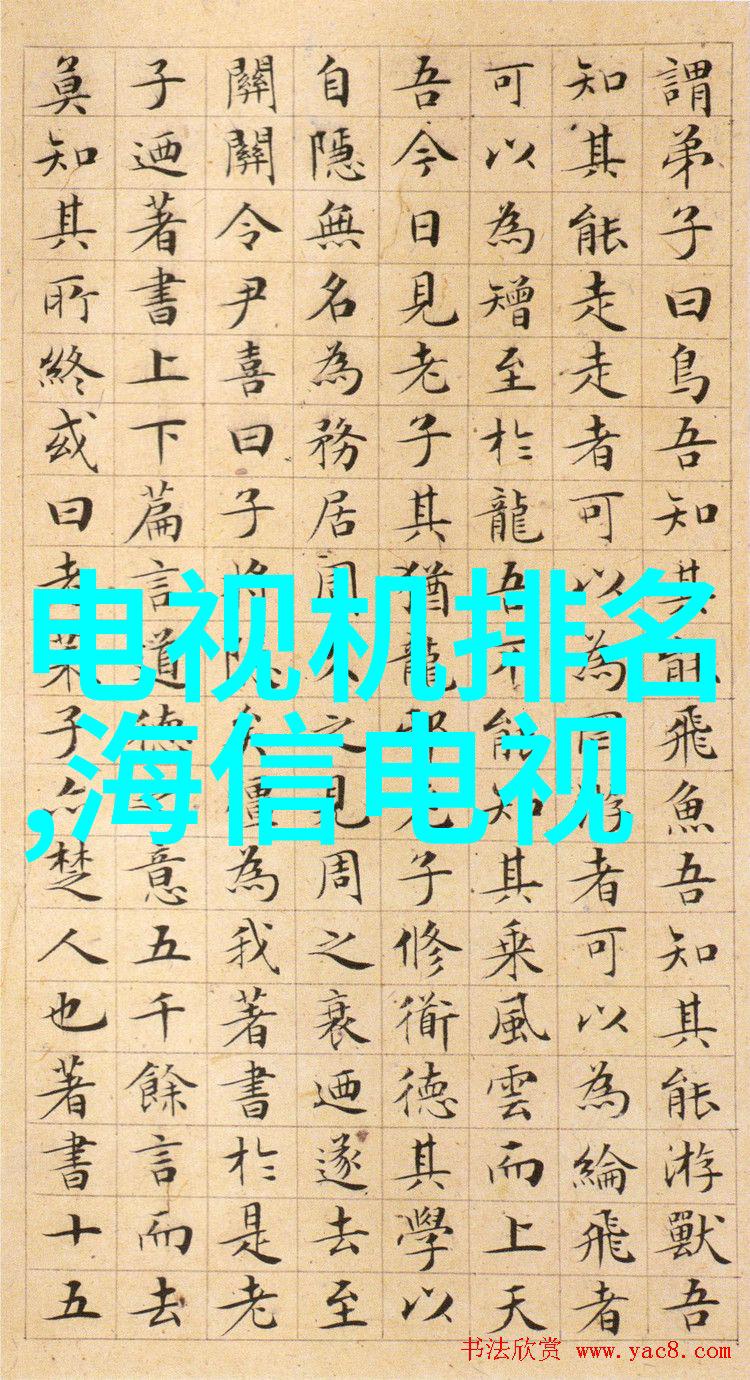 謂弟子曰鳥吾知其能飛魚吾知其能游獸吾
知其能走走者可以為罔游者可以為綸飛者
可以為矰至於龍吾不能知其乘風雲而上天
吾今日見老子其猶龍邪老子修衜德其學以
自隱無名為務居周久之見周之衰迺遂去至
關關令尹喜曰子將隱矣彊為我著書於是老
子迺著書上下篇言道德之意五千餘言而去
莫知其所終或曰老萊子亦楚人也著書十五
电视机排名
,海信电视
书法欣赏 www.yac8.com